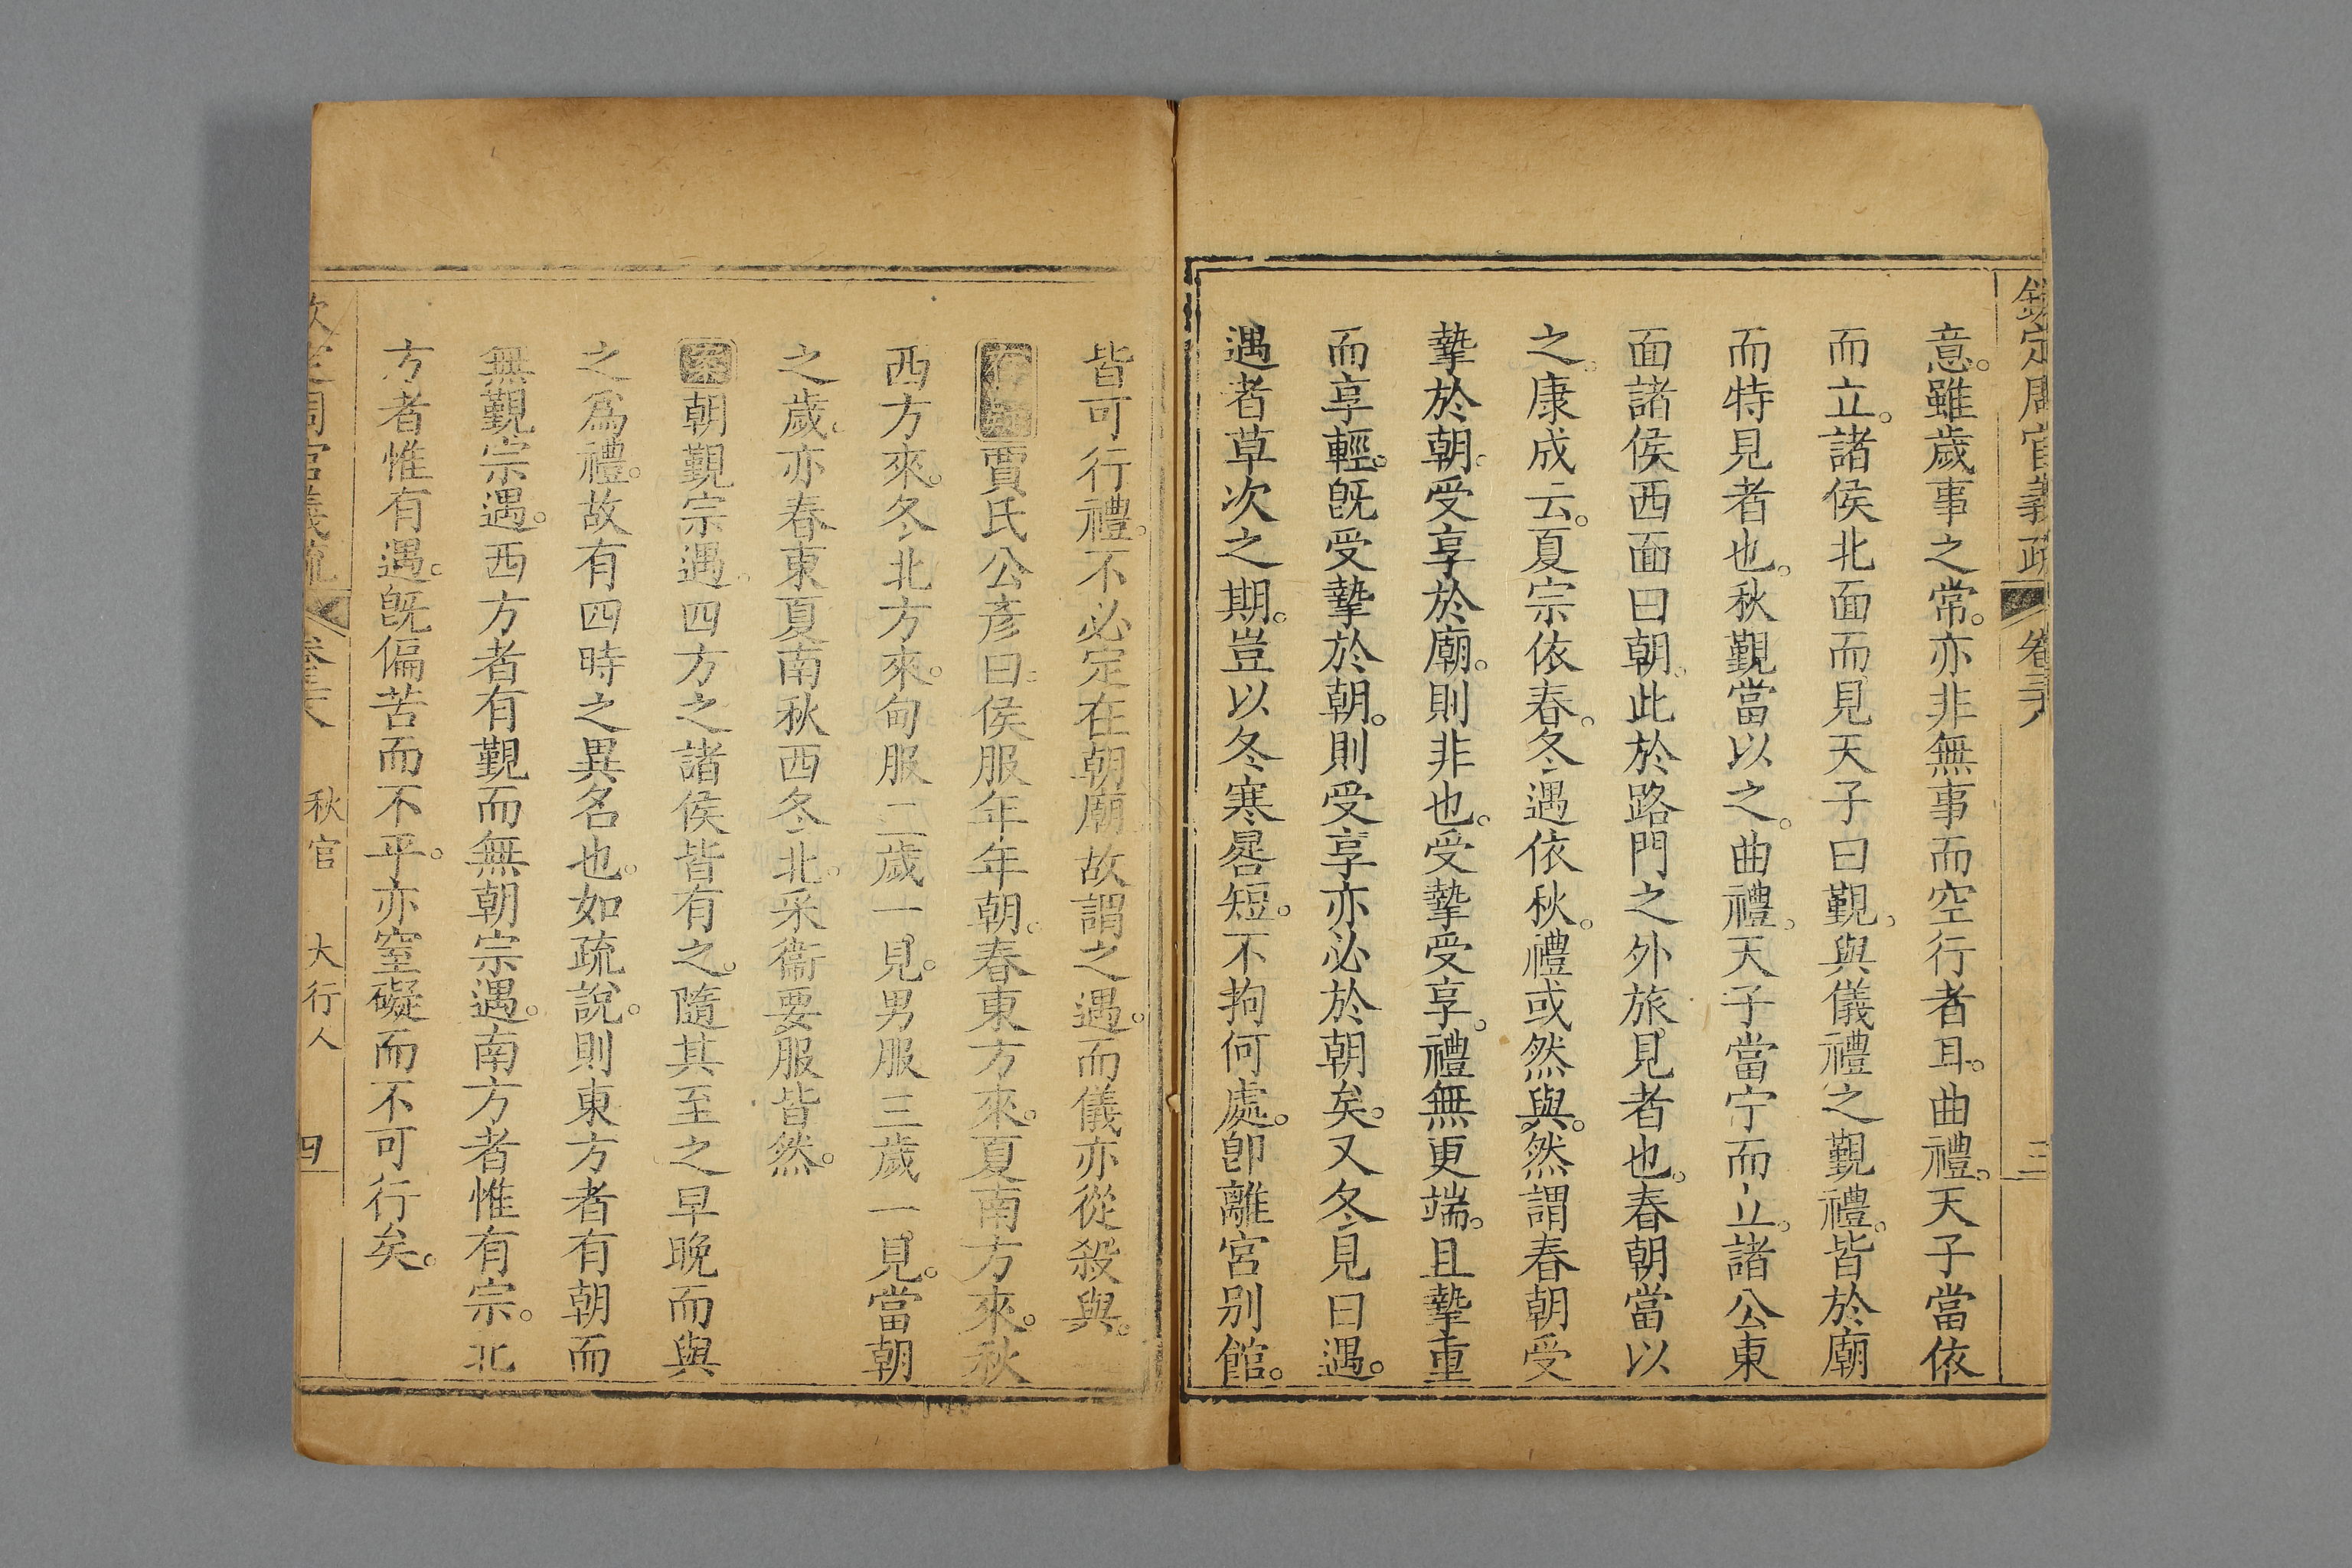 欽定周官義疏 卷三十八 三
意。雖歲事之常。亦非無事而空行者耳。曲禮。天子當依
而立。諸侯北面而見天子曰覲。與儀禮之覲禮。皆於廟
而特見者也。秋覲當以之。曲禮。天子當宁而立。諸公東
面諸侯西面曰朝。此於路門之外旅見者也。春朝當以
之。康成云。夏宗依春。冬遇依秋。禮或然與。然謂春朝受
摯於朝。受享於廟。則非也。受摯受享。禮無更端。且摯重
而享輕。旣受摯於朝。則受享亦必於朝矣。又冬見曰遇。
遇者草次之期。豈以冬寒晷短。不拘何處。卽離宮別館。
皆可行禮。不必定在朝廟。故謂之遇。而儀亦從殺與。
存疑賈氏公彥曰。侯服年年朝。春東方來。夏南方來。秋
西方來。冬北方來。甸服二歲一見。男服三歲一見。當朝
之歲。亦春東夏南秋西冬北。采衞要服皆然。
案朝覲宗遇。四方之諸侯皆有之。隨其至之早晚而與
之爲禮。故有四時之異名也。如疏說。則東方者有朝而
無覲宗遇。西方者有覲而無朝宗遇。南方者惟有宗。北
方者惟有遇。旣偏苦而不平。亦窒礙而不可行矣。
欽定周官義疏 卷三十八 秋官 大行人 四